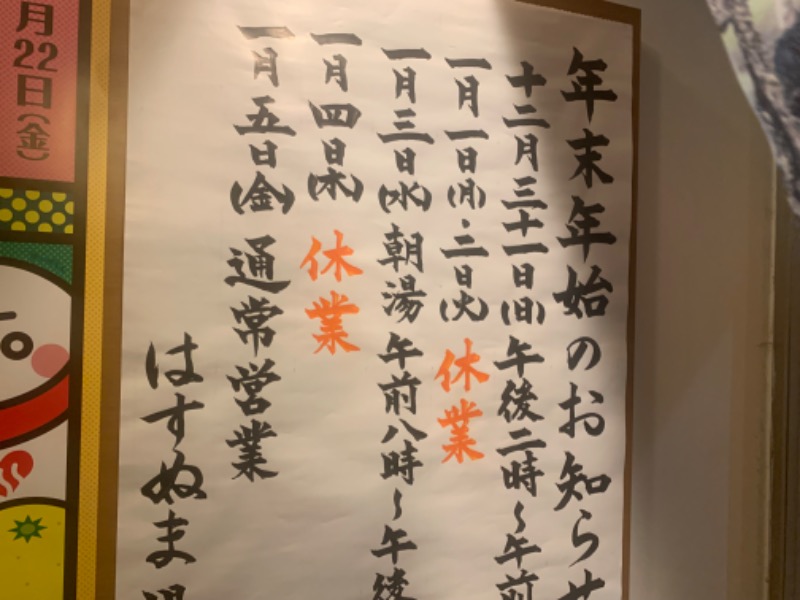 年末年始のお知らせ
十二月三十一日(日) 午後二時〜午前
一月一日(月)・二日(火) 休業
一月三日(水) 朝湯 午前八時〜午後
一月四日(木) 休業
一月五日(金) 通常営業
はすぬま
月22日(金)